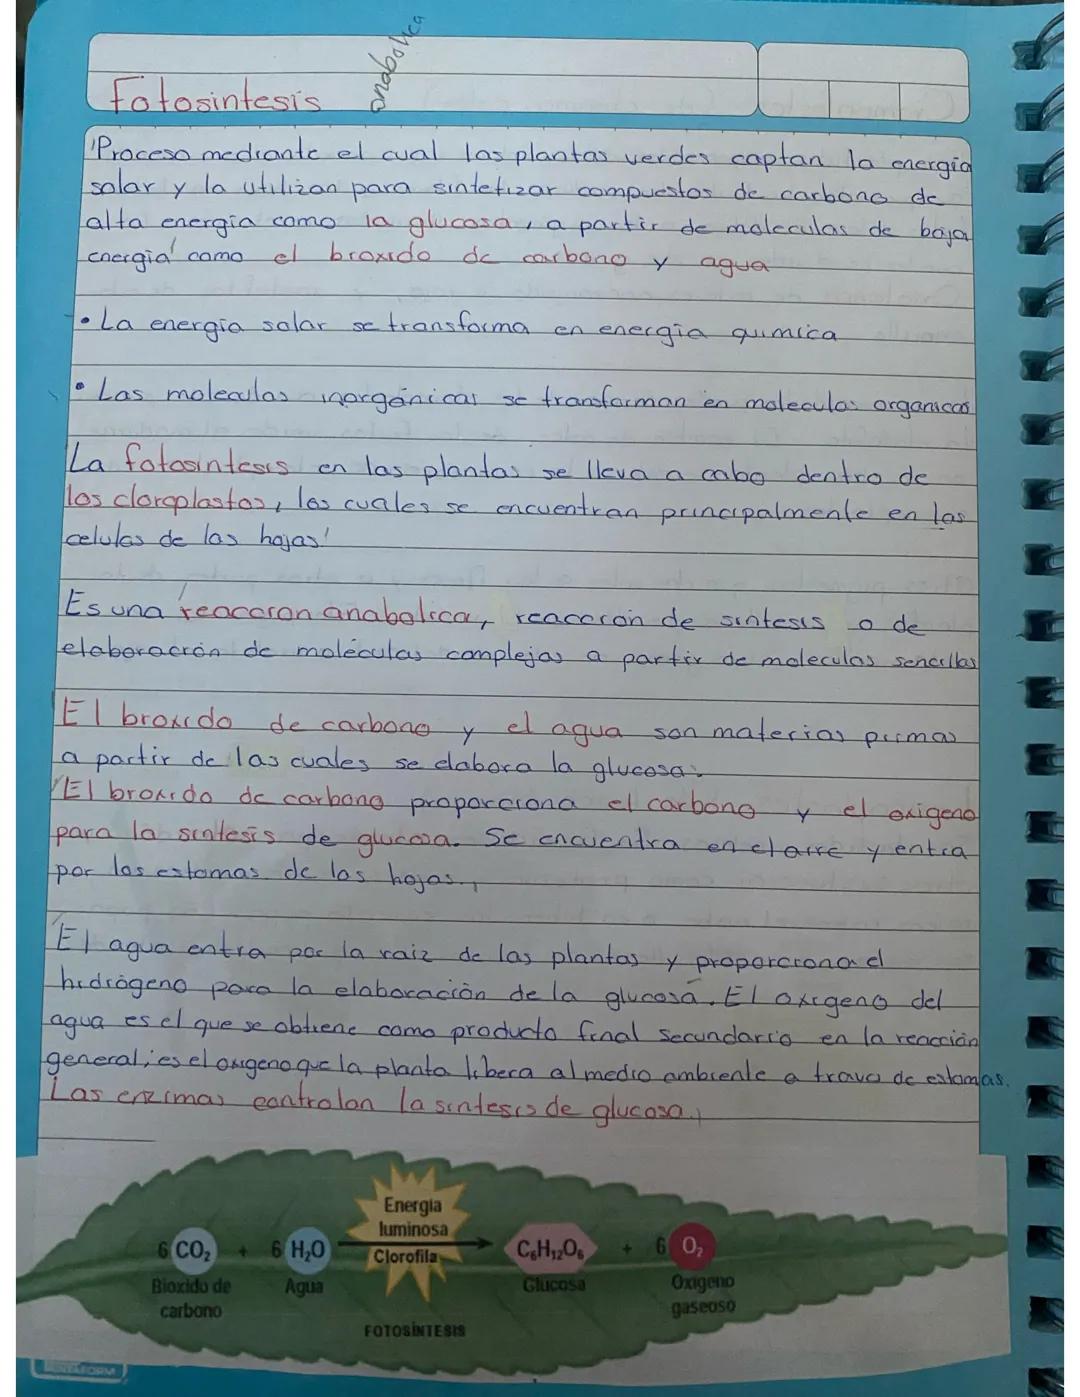 anabolica
Fotosintesis
Proceso mediante el cual las plantas verdes captan la energía
solar y la utilizan para sintetizar compuestos de carbono de
alta energía como la glucosa, a partir de moleculas de baja
energia como el bioxido de carbono y agua
• La energía solar se transforma en energía quimica
• Las moleculas inorgánicas se transforman en moleculas organicas
La fotosintesis en las plantas se lleva a cabo dentro de
los cloroplastos, los cuales se encuentran principalmente en las
celulas de las hojas
Es una reaccion anabolica, reacción de sintesis o de
elaboración de moléculas complejas a partir de moleculas sencillas
El bioxido de carbono y el agua son materias primas
a partir de las cuales se elabora la glucosa.
El bioxido de carbono proporciona el carbono y el oxigeno
para la sintesis de glucosa. Se encuentra en el aire y entra
por los estomas de las hojas.
El agua entra por la raiz de las plantas y proporciona el
hidrógeno para la elaboración de la glucosa. El oxigeno del
agua es el que se obtiene como producto final secundario en la reacción
general; es el oxigeno que la planta libera al medio ambiente a traves de estomas.
Las enzimas controlan la sintesis de glucosa.
Energía
luminosa
6 CO₂ + 6 H₂O Clorofila C₆H₁₂O₆ + 6 O₂
Bioxido de Agua Glucosa Oxigeno
carbono gaseoso
FOTOSÍNTESIS